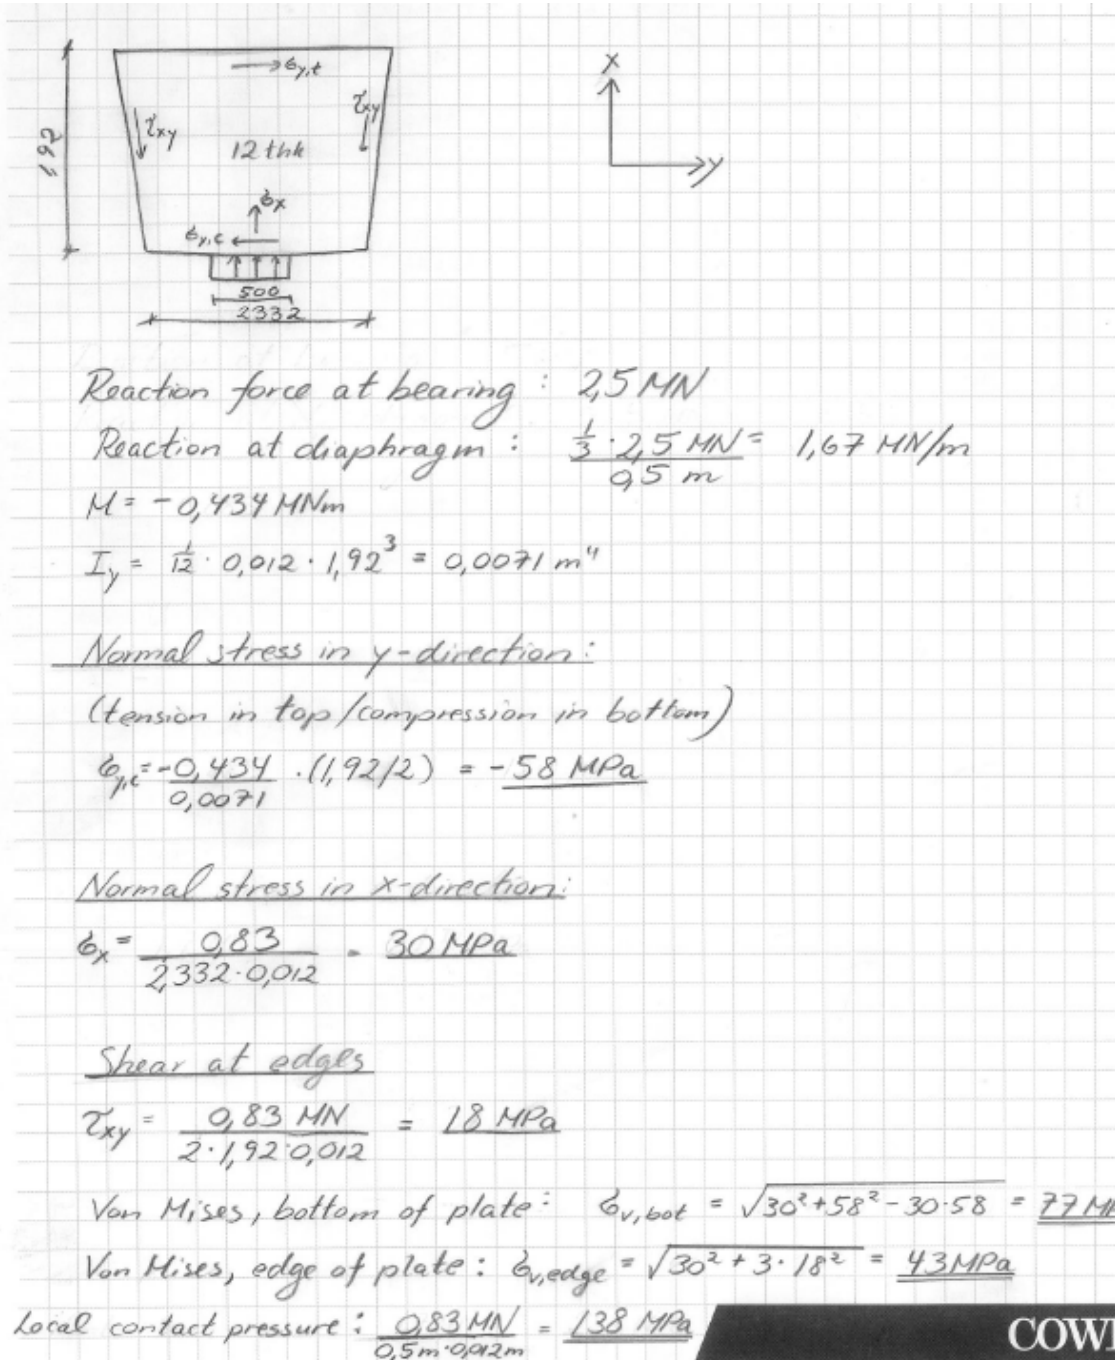 σy,t
τxy
τxy
12 thk
192
σx
σy,c
500
2332
x
y
Reaction force at bearing : 2,5 MN
Reaction at diaphragm : 1/3 · 2,5 MN / 0,5 m = 1,67 MN/m
M = -0,434 MNm
Iy = 1/12 · 0,012 · 1,92³ = 0,0071 m⁴
Normal stress in y-direction:
(tension in top/compression in bottom)
σy,c = -0,434 / 0,0071 · (1,92/2) = -58 MPa
Normal stress in x-direction:
σx = 0,83 / 2,332·0,012 = 30 MPa
Shear at edges
τxy = 0,83 MN / 2·1,92·0,012 = 18 MPa
Von Mises, bottom of plate: σv,bot = √30²+58²-30·58 = 77 MP
Von Mises, edge of plate: σv,edge = √30² + 3·18² = 43 MPa
Local contact pressure: 0,83 MN / 0,5m·0,012m = 138 MPa
COWI